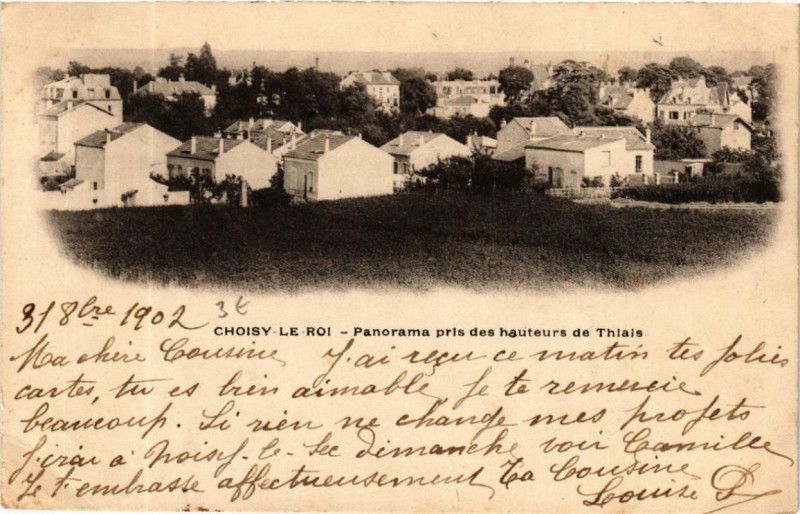 31 8bre 1902 3€
CHOISY-LE-ROI – Panorama pris des hauteurs de Thiais
Ma chère Cousine J'ai reçu ce matin tes jolies
cartes, tu es bien aimable je te remercie
beaucoup. Si rien ne change mes projets
j'irai à Noisy-le-Sec dimanche voir Camille
Je t'embrasse affectueusement Ta Cousine
Louise P.